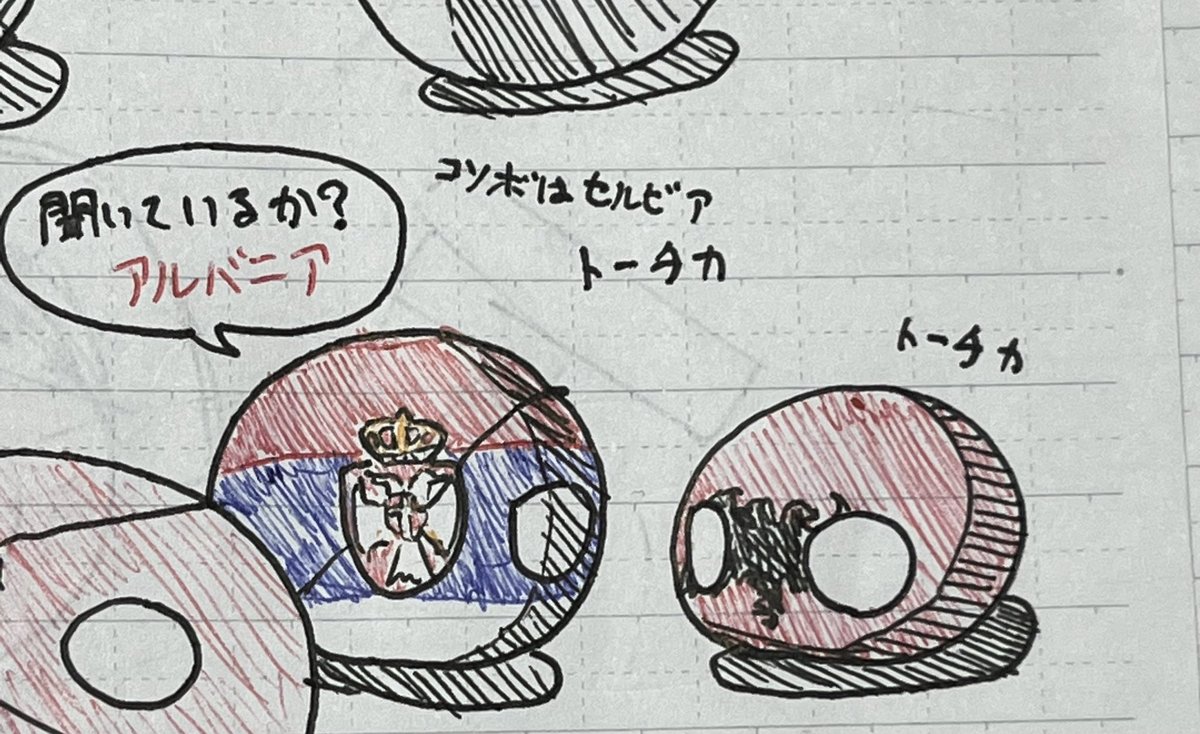 聞いているか?
アルバニア
コソボはセルビア
トータカ
トータカ